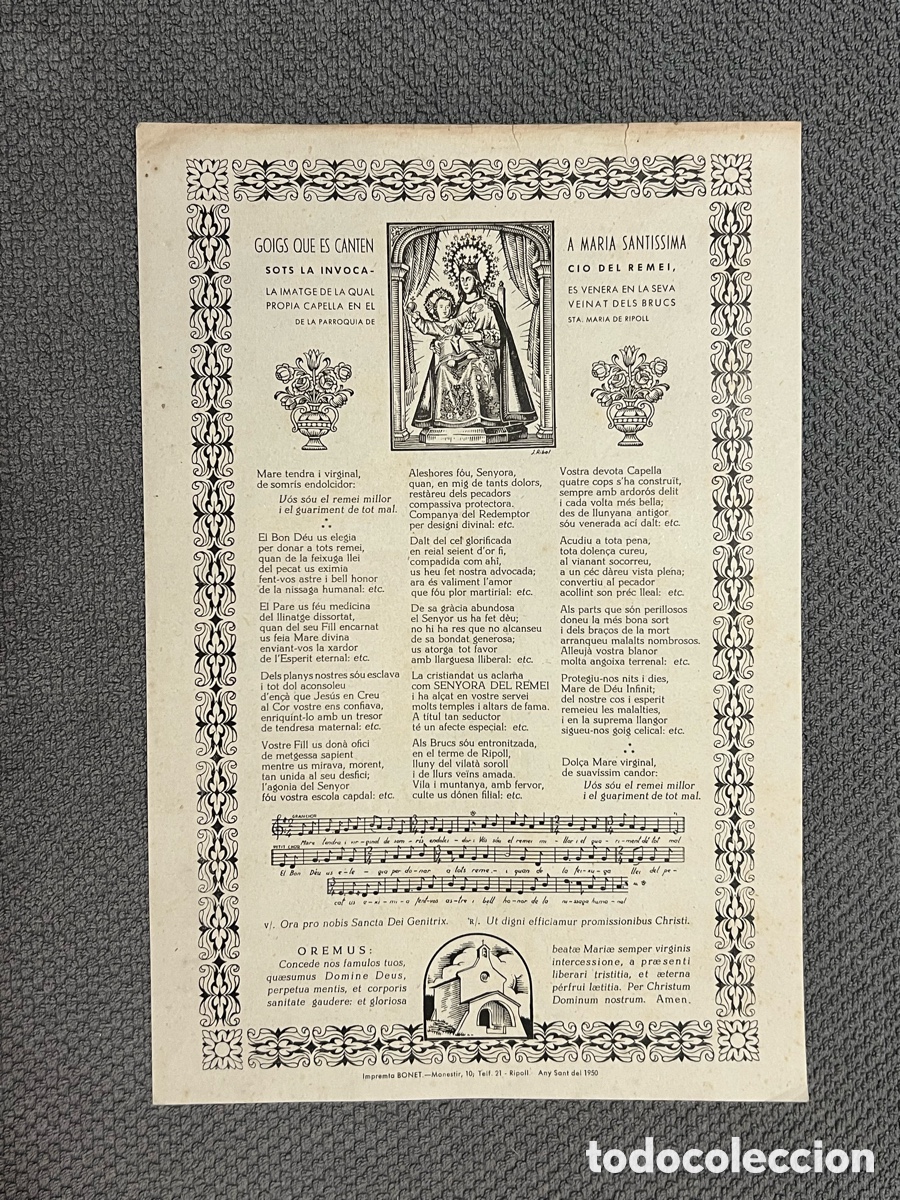 GOIGS QUE ES CANTEN A MARIA SANTISSIMA
SOTS LA INVOCA- CIO DEL REMEI,
LA IMATGE DE LA QUAL ES VENERA EN LA SEVA
PROPIA CAPELLA EN EL VEINAT DELS BRUCS
DE LA PARROQUIA DE STA. MARIA DE RIPOLL
J. Ribot
Mare tendra i virginal,
de somris endolcidor:
Vós sóu el remei millor
i el guariment de tot mal.
El Bon Déu us elegia
per donar a tots remei,
quan de la feixuga llei
del pecat us eximia
fent-vos astre i bell honor
de la nissaga humanal: etc.
El Pare us féu medicina
del llinatge dissortat,
quan del seu Fill encarnat
us feia Mare divina
enviant-vos la xardor
de l'Esperit eternal: etc.
Dels planys nostres sóu esclava
i tot dol aconsoleu
d'ençà que Jesús en Creu
al Cor vostre ens confiava,
enriquint-lo amb un tresor
de tendresa maternal: etc.
Vostre Fill us donà ofici
de metgessa sapient
mentre us mirava, morent,
tan unida al seu desfici;
l'agonia del Senyor
fóu vostra escola capdal: etc.
Aleshores fóu, Senyora,
quan, en mig de tants dolors,
restàreu dels pecadors
compassiva protectora.
Companya del Redemptor
per designi divinal: etc.
Dalt del cel glorificada
en reial seient d'or fi,
compadida com ahí,
us heu fet nostra advocada;
ara és valiment l'amor
que fóu plor martirial: etc.
De sa gràcia abundosa
el Senyor us ha fet dèu;
no hi ha res que no alcanseu
de sa bondat generosa;
us atorga tot favor
amb llarguesa lliberal: etc.
La cristiandat us aclama
com SENYORA DEL REMEI
i ha alçat en vostre servei
molts temples i altars de fama.
A títul tan seductor
té un afecte especial: etc.
Als Brucs sóu entronitzada,
en el terme de Ripoll,
lluny del vilatà soroll
i de llurs veïns amada.
Vila i muntanya, amb fervor,
culte us dónen filial: etc.
Vostra devota Capella
quatre cops s'ha construït,
sempre amb ardorós delit
i cada volta més bella;
des de llunyana antigor
sóu venerada ací dalt: etc.
Acudiu a tota pena,
tota dolença cureu,
al vianant socorreu,
a un céc dàreu vista plena;
convertiu al pecador
acollint son préc lleal: etc.
Als parts que són perillosos
doneu la més bona sort
i dels braços de la mort
arranqueu malalts nombrosos.
Alleujà vostra blanor
molta angoixa terrenal: etc.
Protegiu-nos nits i dies,
Mare de Déu Infinit;
del nostre cos i esperit
remeieu les malalties,
i en la suprema llangor
sigueu-nos goig celical: etc.
Dolça Mare virginal,
de suavíssim candor:
Vós sóu el remei millor
i el guariment de tot mal.
GRAN CHOR
Mare tendra i vir-ginal de som-ris endolci-dor: Vós sóu el remei mi-llor i el gua-ri-ment de tot mal
PETIT CHOR
El Bon Déu us e-le-gia per do-nar a tots remei, quan de la fei-xu-ga llei del pe-
cat us e-xi-mi-a fent-vos as-tre i bell ho-nor de la nissaga huma-nal
V/. Ora pro nobis Sancta Dei Genitrix. R/. Ut digni efficiamur promissionibus Christi.
OREMUS:
Concede nos famulos tuos,
quæsumus Domine Deus,
perpetua mentis, et corporis
sanitate gaudere: et gloriosa
beatæ Mariæ semper virginis
intercessione, a præsenti
liberari tristitia, et æterna
pérfrui lætitia. Per Christum
Dominum nostrum. Amen.
Impremta BONET.—Monestir, 10; Telf. 21 - Ripoll. Any Sant del 1950
todocoleccion